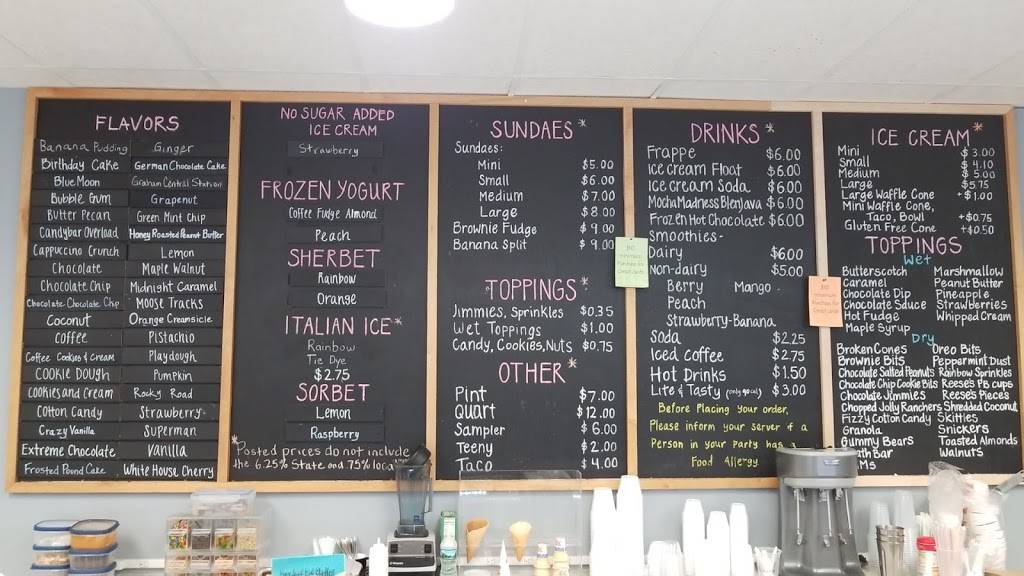 FLAVORS
Banana Pudding
Birthday Cake
Blue Moon
Bubble Gum
Butter Pecan
Candybar Overload
Cappuccino Crunch
Chocolate
Chocolate Chip
Chocolate Chocolate Chip
Coconut
Coffee
Coffee Cookies & Cream
COOKIE DOUGH
COOKIES and CREAM
Cotton Candy
Crazy Vanilla
Extreme Chocolate
Frosted Pound Cake
Ginger
German Chocolate Cake
Graham Central Station
Grapenut
Green Mint Chip
Honey Roasted Peanut Butter
Lemon
Maple Walnut
Midnight Caramel
MOOSE TRACKS
Orange Creamsicle
Pistachio
Playdough
Pumpkin
Rocky Road
Strawberry
Superman
Vanilla
White House Cherry
NO SUGAR ADDED
ICE CREAM
Strawberry
FROZEN YOGURT
Coffee Fudge Almond
Peach
SHERBET
Rainbow
Orange
ITALIAN ICE*
Rainbow
Tie Dye
$2.75
SORBET
Lemon
Raspberry
*Posted prices do not include
the 6.25% State and .75% local
SUNDAES*
Sundaes:
Mini $5.00
Small $6.00
Medium $7.00
Large $8.00
Brownie Fudge $9.00
Banana Split $9.00
TOPPINGS*
Jimmies, Sprinkles $0.35
Wet Toppings $1.00
Candy, Cookies, Nuts $0.75
OTHER*
Pint $7.00
Quart $12.00
Sampler $6.00
Teeny $2.00
Taco $4.00
NO
minimum
Purchase for
Credit Cards
DRINKS*
Frappe $6.00
ice cream Float $6.00
ice cream Soda $6.00
Mocha Madness Blen Java $6.00
Frozen Hot Chocolate $6.00
Smoothies-
Dairy $6.00
Non-dairy $5.00
Berry Mango
Peach
Strawberry-Banana
Soda $2.25
Iced Coffee $2.75
Hot Drinks $1.50
Lite & Tasty $3.00
Before Placing your order,
Please inform your server if a
Person in your party has a
Food Allergy.
NO
minimum
Purchase for
Credit Cards
ICE CREAM*
Mini $3.00
Small $4.10
Medium $5.00
Large $5.75
Large Waffle Cone +$1.00
Mini Waffle Cone,
Taco, Bowl +$0.75
Gluten Free Cone +$0.50
TOPPINGS
Wet
Butterscotch
Caramel
Chocolate Dip
Chocolate Sauce
Hot Fudge
Maple Syrup
Marshmallow
Peanut Butter
Pineapple
Strawberries
Whipped Cream
Dry
Broken Cones
Brownie Bits
Chocolate Salted Peanuts
Chocolate Chip Cookie Bits
Chocolate Jimmies
Chopped Jolly Ranchers
Fizzy Cotton Candy
Granola
Gummy Bears
Heath Bar
Oreo Bits
Peppermint Dust
Rainbow Sprinkles
Reese's PB cups
Reese's Pieces
Shredded Coconut
Skittles
Snickers
Toasted Almonds
Walnuts